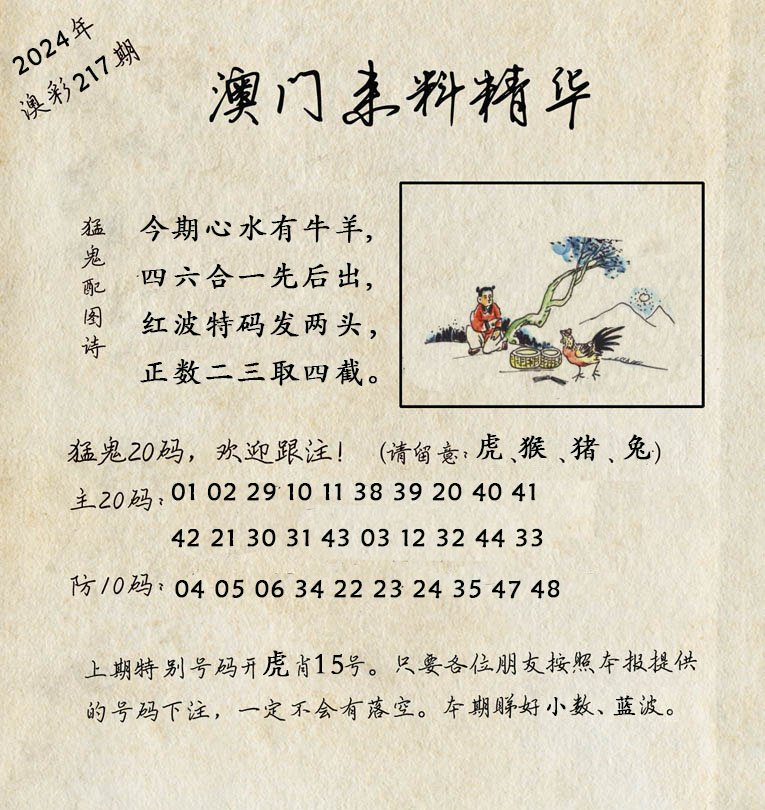 2024年
澳彩217期
澳门来料精华
猛鬼配图诗
今期心水有牛羊,
四六合一先后出,
红波特码发两头,
正数二三取四截。
猛鬼20码,欢迎跟注! (请留意:虎、猴、猪、兔)
主20码:01 02 29 10 11 38 39 20 40 41
42 21 30 31 43 03 12 32 44 33
防10码:04 05 06 34 22 23 24 35 47 48
上期特别号码开虎肖15号。只要各位朋友按照本报提供
的号码下注,一定不会有落空。本期睇好小数、蓝波。